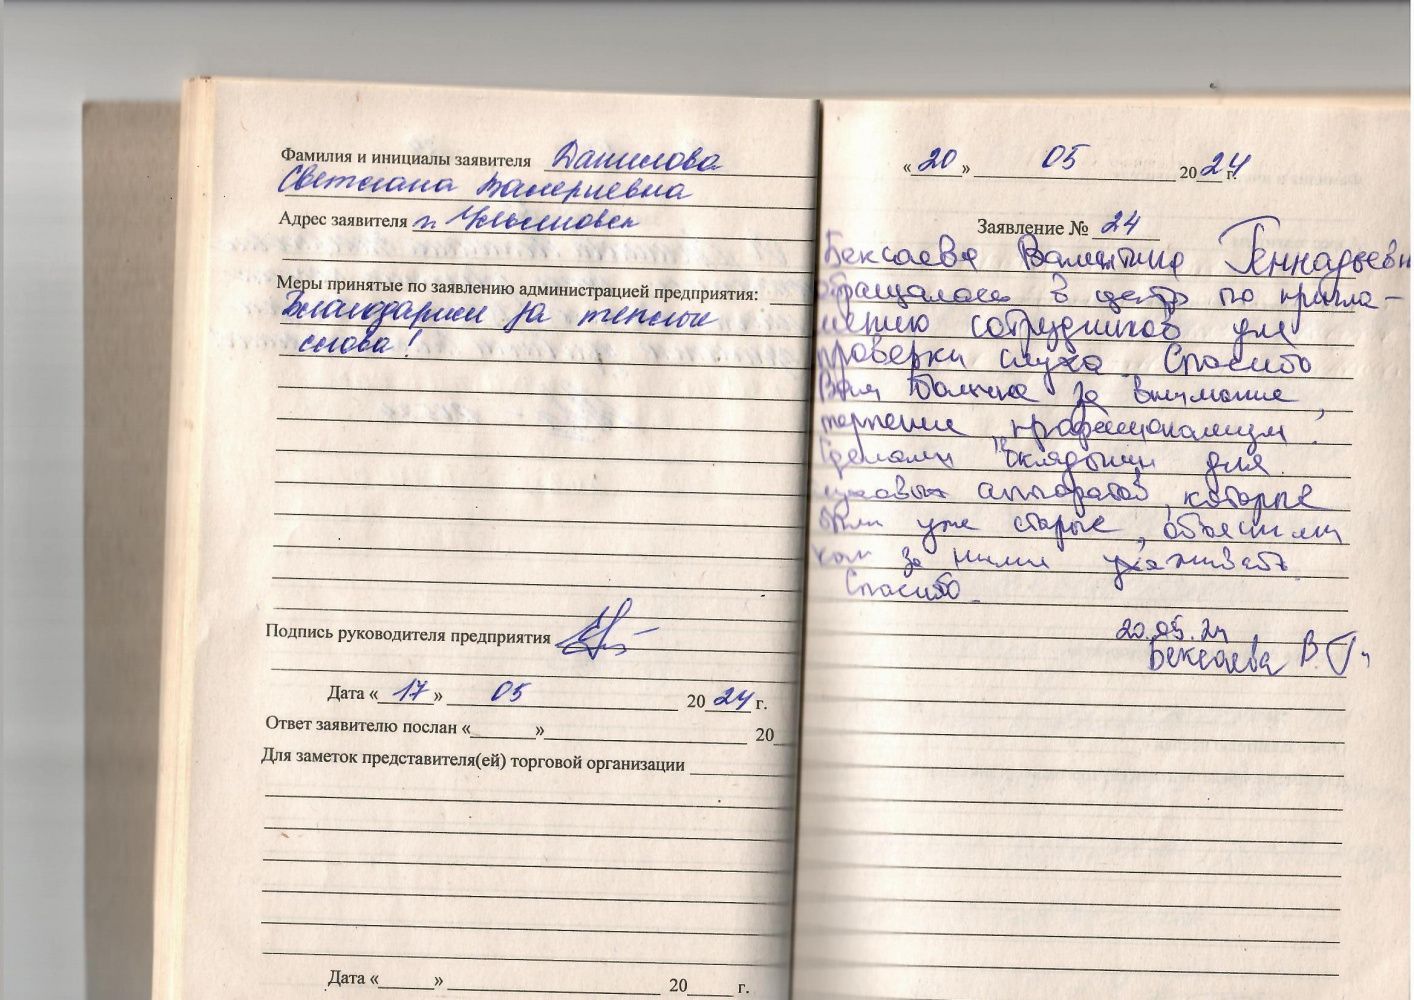 Фамилия и инициалы заявителя Данилова
Светлана Валериевна
Адрес заявителя г. Ульяновск
Меры принятые по заявлению администрацией предприятия:
Благодарим за теплые
слова!
Подпись руководителя предприятия
Дата « 17 » 05 2024 г.
Ответ заявителю послан «______»____________ 20
Для заметок представителя(ей) торговой организации
Дата «______» ____________ 20____ г.
« 20 » 05 2024 г.
Заявление № 24
Бексаева Валентина Геннадьевн
обращалась в центр по пригла-
шению сотрудников для
проверки слуха. Спасибо
Вам большое за внимание,
терпение, профессионализм!
Сделали вкладыши для
слуховых аппаратов, которые
были уже старые, объяснили
как за ними ухаживать.
Спасибо.
20.05.24
Бексаева В.Г.